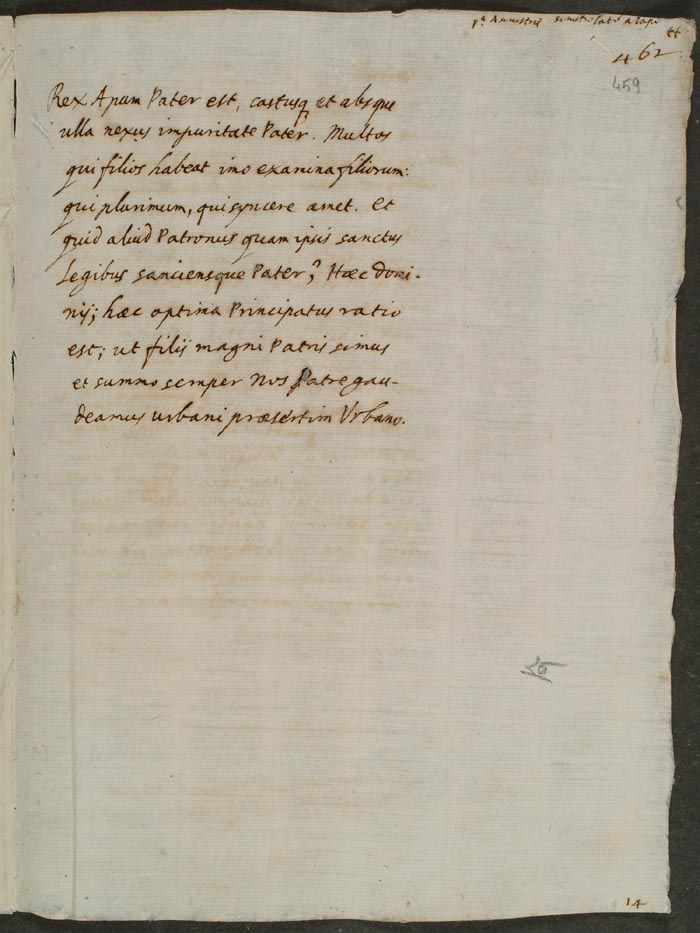 sinistro latere
462
459
Rex Apum Pater est, castusq; et absque
ulla nexus impuritate Pater. Multos
qui filios habeat imo examina filiorum:
qui plurimum, qui syncere amet. Et
quid aliud Patronus quam ipsis sanctus
Legibus sanciensque Pater? Hæc domi-
nij; hæc optima Principatus ratio
est; ut filij magni Patris simus
et summo semper nos Patre gau-
deamus urbani præsertim Urbano.
14